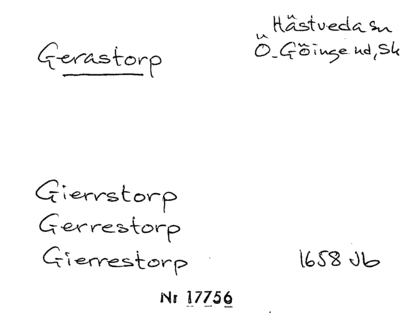 Hästveda sn
Gerastorp Ö. Göinge hd, Sk
Gierrstorp
Gerrestorp
Gierrestorp 1658 Jb
Nr 17756